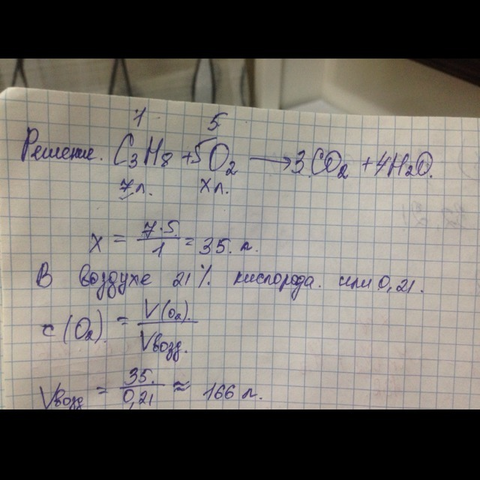 1 5
Решение. C₃H₈ + 5O₂ → 3CO₂ + 4H₂O.
7л. хл.
x = 7·5. / 1 = 35. л.
В воздухе 21% кислорода. или 0,21.
c(O₂) = V(O₂). / Vвозд.
Vвозд = 35. / 0,21 ≈ 166 л.